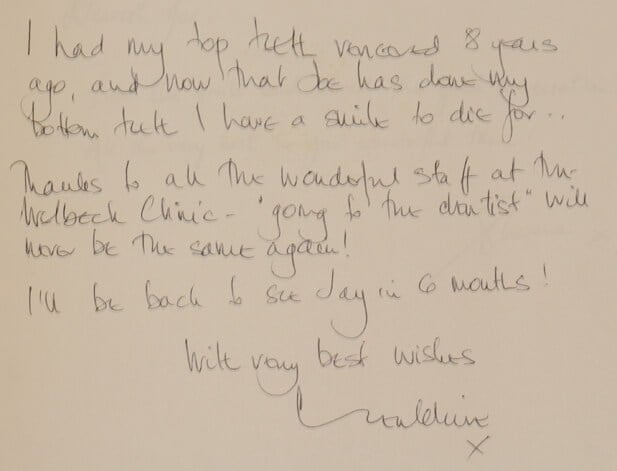 I had my top teeth veneered 8 years
ago, and now that Joe has done my
bottom teeth I have a smile to die for..
Thanks to all the wonderful staff at the
Welbeck Clinic - "going to the dentist" will
never be the same again!
I'll be back to see Jay in 6 months!
With very best wishes
Geraldine
x